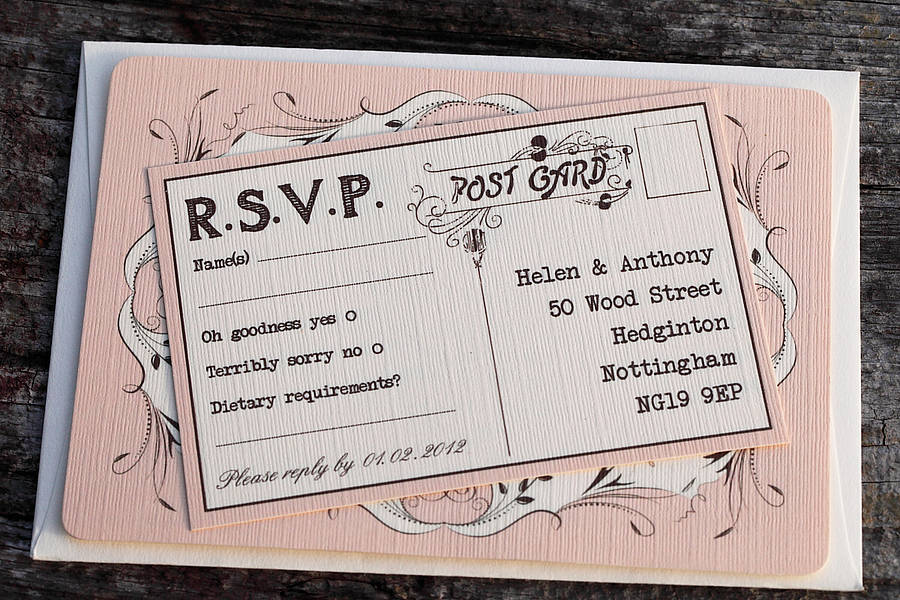 R.S.V.P.
POST CARD
Name(s)
Oh goodness yes
Terribly sorry no
Dietary requirements?
Please reply by 01.02.2012
Helen & Anthony
50 Wood Street
Hedginton
Nottingham
NG19 9EP